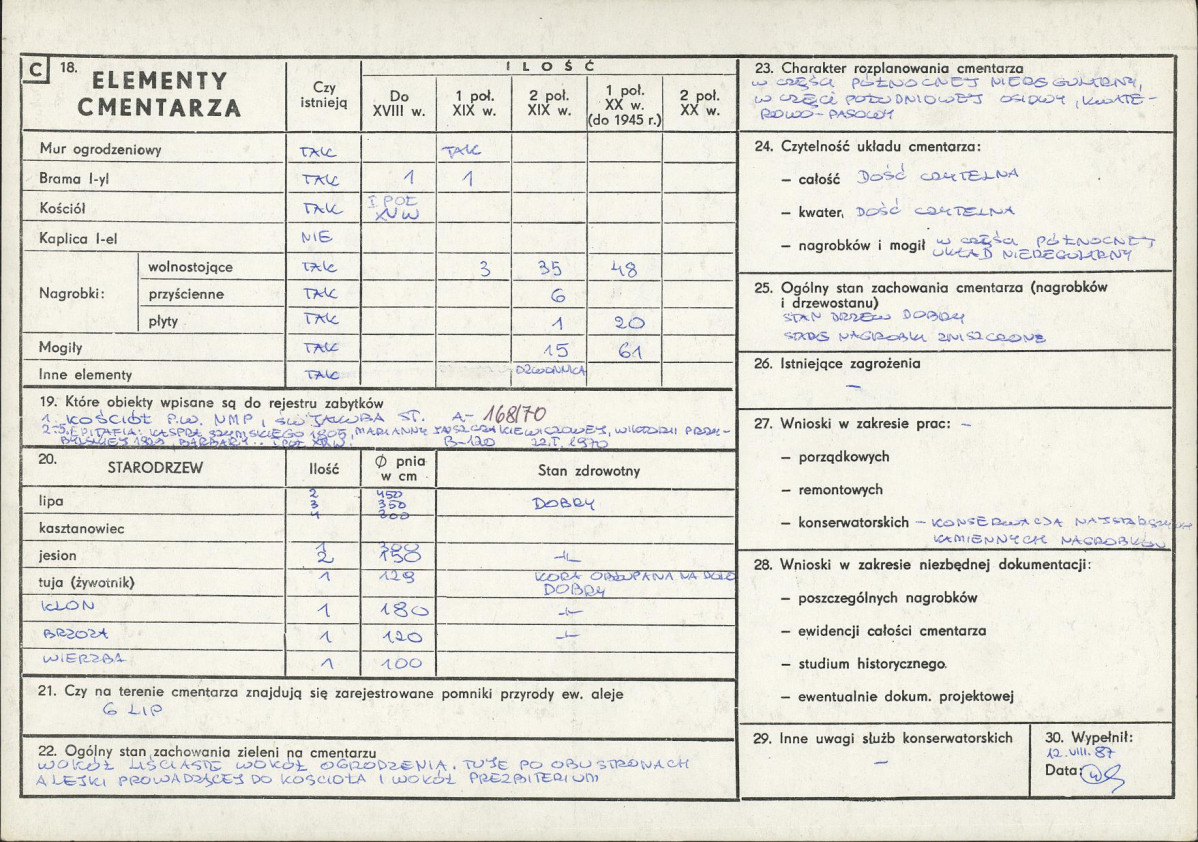 C 18. ELEMENTY CMENTARZA
Czy istnieją
ILOŚĆ
Do XVIII w.
1 poł. XIX w.
2 poł. XIX w.
1 poł. XX w. (do 1945 r.)
2 poł. XX w.
Mur ogrodzeniowy TAK TAK
Brama I-yl TAK 1 1
Kościół TAK I POŁ XVW
Kaplica I-el NIE
Nagrobki:
wolnostojące TAK 3 35 48
przyścienne TAK 6
płyty TAK 1 20
Mogiły TAK 15 61
Inne elementy TAK DZWONNICA
19. Które obiekty wpisane są do rejestru zabytków
1. KOŚCIÓŁ P.W. NMP I ŚW JAKUBA ST. A- 168/70
2-5. EPITAFIA: KASPRA 1905, MARIANNY WIKTORII
1929, BARBARY B-120 22.I.1970
20. STARODRZEW
Ilość
Ø pnia w cm
Stan zdrowotny
lipa 2 450
3 350 DOBRY
4 300
kasztanowiec
jesion 1 300
2 150 -||-
tuja (żywotnik) 1 129 KORA OBŁUPANA NA DOLE
DOBRY
KLON 1 180 -||-
BRZOZA 1 120 -||-
WIERZBA 1 100
21. Czy na terenie cmentarza znajdują się zarejestrowane pomniki przyrody ew. aleje
6 LIP
22. Ogólny stan zachowania zieleni na cmentarzu
WOKÓŁ LIŚCIASTE WOKÓŁ OGRODZENIA. TUJE PO OBU STRONACH
ALEJKI PROWADZĄCEJ DO KOŚCIOŁA I WOKÓŁ PREZBITERIUM
23. Charakter rozplanowania cmentarza
W CZĘŚCI PÓŁNOCNEJ NIEREGULARNY,
W CZĘŚCI POŁUDNIOWEJ OSIOWY, KWATE-
ROWO-PASOWY
24. Czytelność układu cmentarza:
– całość DOŚĆ CZYTELNA
– kwater, DOŚĆ CZYTELNA
– nagrobków i mogił W CZĘŚCI PÓŁNOCNEJ
UKŁAD NIEREGULARNY
25. Ogólny stan zachowania cmentarza (nagrobków
i drzewostanu)
STAN DRZEW DOBRY
STARE NAGROBKI ZNISZCZONE
26. Istniejące zagrożenia
–
27. Wnioski w zakresie prac: –
– porządkowych
– remontowych
– konserwatorskich – KONSERWACJA NAJSTARSZYCH
KAMIENNYCH NAGROBKÓW
28. Wnioski w zakresie niezbędnej dokumentacji:
– poszczególnych nagrobków
– ewidencji całości cmentarza
– studium historycznego.
– ewentualnie dokum. projektowej
29. Inne uwagi służb konserwatorskich
–
30. Wypełnił:
12.VIII.87
Data: